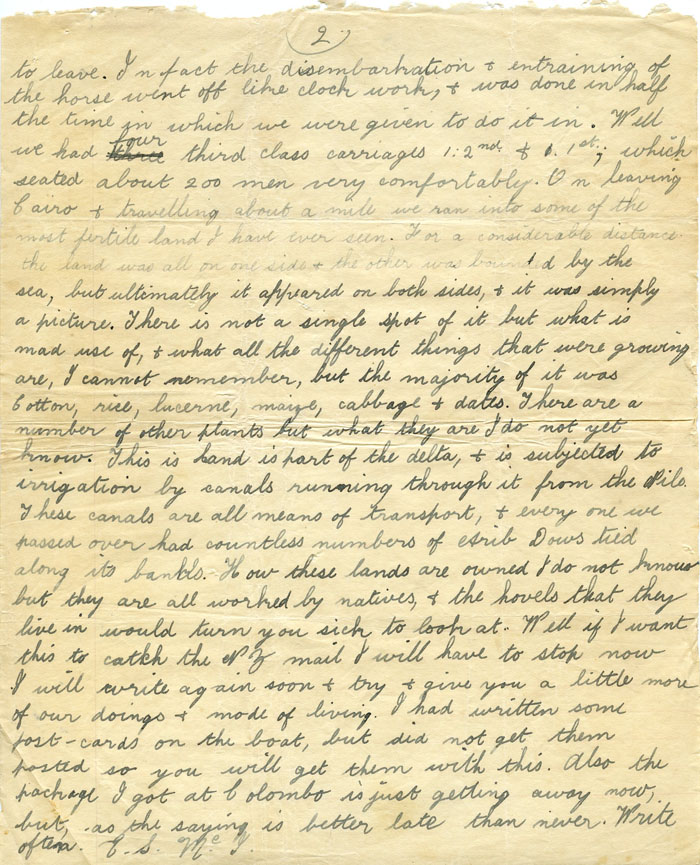 2
to leave. In fact the disembarkation & entraining of
the horse went off like clock work, & was done in half
the time in which we were given to do it in. Well
we had four third class carriages 1: 2nd & 1. 1st; which
seated about 200 men very comfortably. On leaving
Cairo & travelling about a mile we ran into some of the
most fertile land I have ever seen. For a considerable distance
the land was all on one side & the other was bounded by the
sea, but ultimately it appeared on both sides, & it was simply
a picture. There is not a single spot of it but what is
mad use of, & what all the different things that were growing
are, I cannot remember, but the majority of it was
Cotton, rice, lucerne, maize, cabbage & dates. There are a
number of other plants but what they are I do not yet
know. This is land is part of the delta, & is subjected to
irrigation by canals running through it from the Nile.
These canals are all means of transport, & every one we
passed over had countless numbers of Dows tied
along its banks. How these lands are owned I do not know
but they are all worked by natives, & the hovels that they
live in would turn you sick to look at. Well if I want
this to catch the N Z mail I will have to stop now
I will write again soon & try & give you a little more
of our doings & mode of living. I had written some
post-cards on the boat, but did not get them
posted so you will get them with this. Also the
package I got at Colombo is just getting away now,
but, as the saying is better late than never. Write
often. E. S. Mc I.